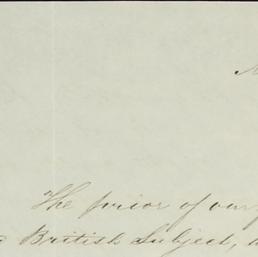 The prior of our
British Subject,